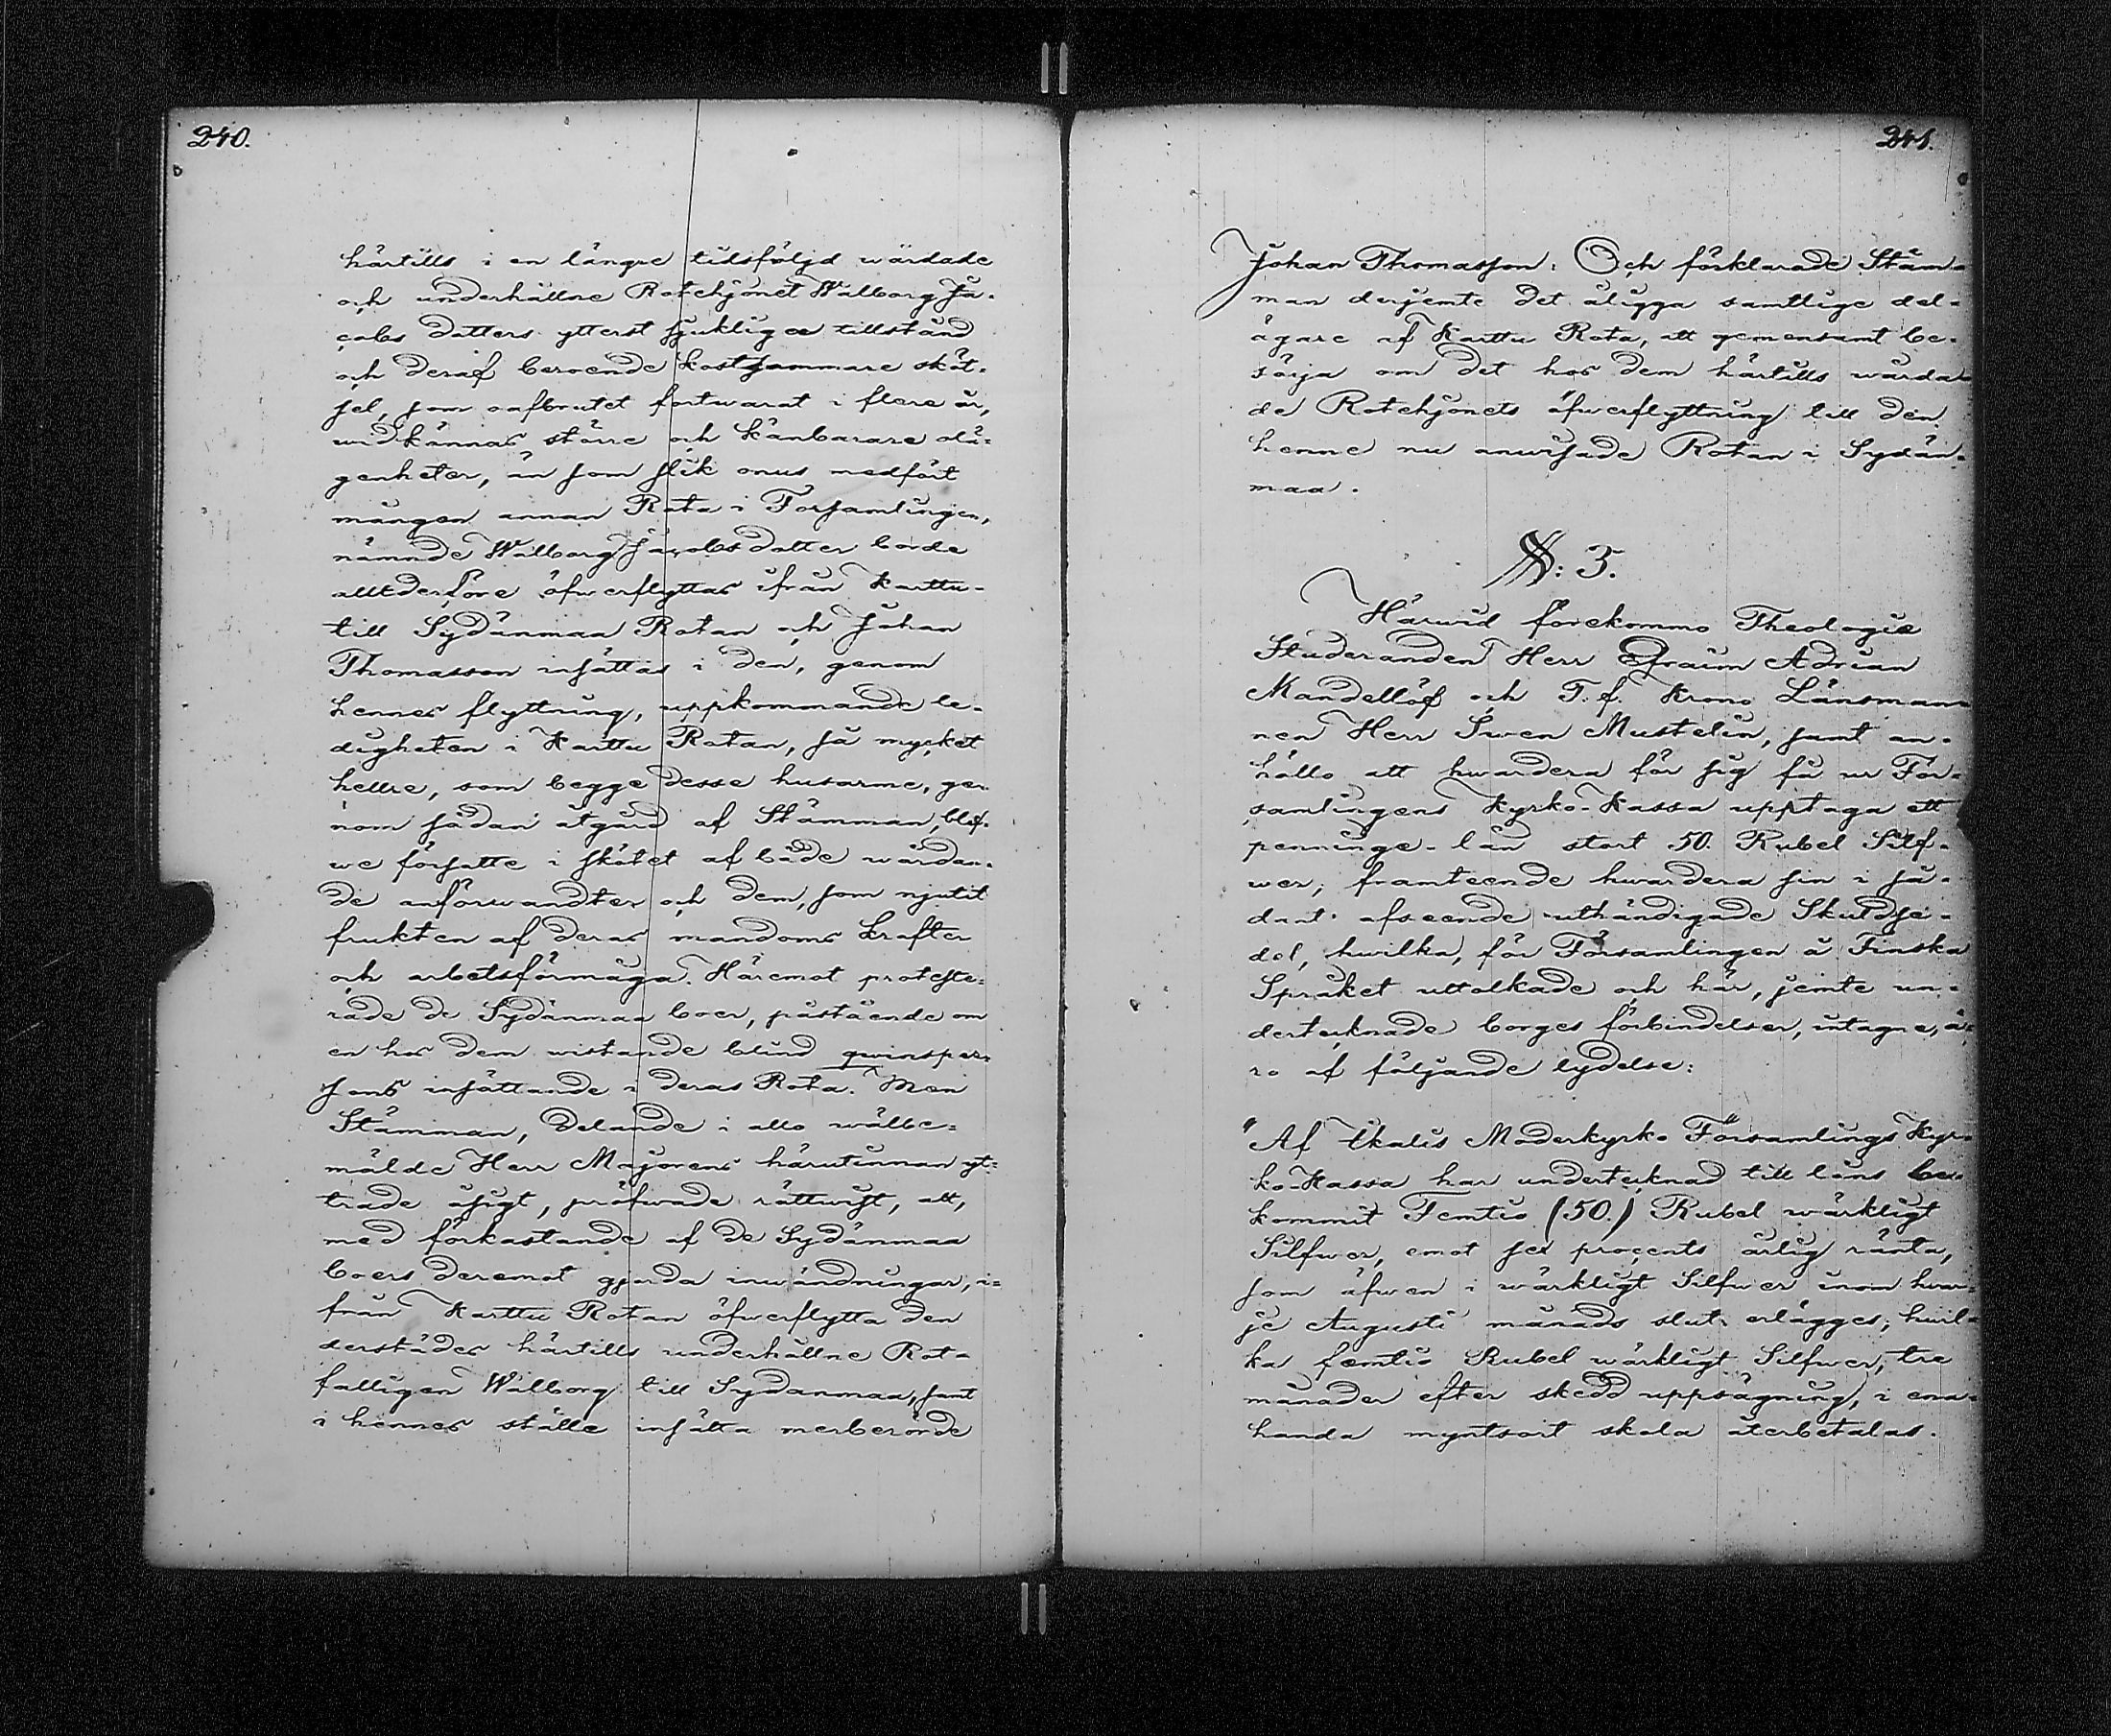 240.
härtills i en längre tidsföljd wårdade
och underhållne Rotehjonet Walborg Ja-
cobs dotters ytterst sjukliga tillstånd
och deraf beroende kostsammare sköt-
sel, som oafbrutet fortwarat i flere år,
widkännas större och känbarare olä-
genheter, än som slik onus medfört
mången annan Rota i Församlingen,
nämnde Walborg Jacobsdotter borde
alltderföre öfwerflyttas ifrån Karttu-
till Sydänmaa Rotan och Johan
Thomasson insättas i den, genom
hennes flyttning, uppkommande le-
digheten i Karttu Rotan, så mycket
hellre, som begge desse husarme, ge-
nom sådan åtgärd af Stämman, blef-
we försatte i skötet af både wårdan-
de anförwandter och dem, som njutit
frukten af deras mandoms krafter
och arbetsförmåga. Häremot proteste-
rade de Sydänmaa boer, påstående om
en hos dem wistande blind qwinsper-
sons insättande i deras Rota. Men
Stämman, delande i allo wälbe-
mälde Herr Majorens härutinnan yt-
trade åsigt, pröfwade rättwist, att,
med förkastande af de Sydänmaa
boers deremot gjorda inwändningar, i-
från Karttu Rotan öfwerflytta den
derstädes härtills underhållne Rot-
falligen Walborg till Sydänmaa, samt
i hennes ställe insätta merberörde
241.
Johan Thomasson: Och förklarade Stäm-
man derjemte det åligga samtlige del-
ägare af Karttu Rota, att gemensamt be-
sörja om det hos dem härtills wårda-
de Rotehjonets öfwerflyttning till den
henne nu anwisade Rotan i Sydän-
maa.
§: 3.
Härwid förekommo Theologie
Studeranden Herr Efraim Adrian
Mandellöf och T. f. Krono Länsman-
nen Herr Swen Mustelin, samt an-
höllo att hwardera för sig få ur För-
samlingens Kyrko-Kassa upptaga ett
penninge-lån stort 50. Rubel Silf-
wer, framteende hwardera sin i så-
dant afseende uthändigade Skuldse-
del, hwilka, för Församlingen å Finska
Språket uttolkade och här, jemte un-
dertecknade borges förbindelser, intagne, ä-
ro af följande lydelse:
"Af Ikalis Moderkyrko Församlings Kyr-
ko-Kassa har undertecknad till låns be-
kommit Femtio (50.) Rubel wärkligt
Silfwer, emot sex procents årlig ränta,
som äfwen i wärkligt Silfwer inom hwar-
je Augusti månads slut erlägges; hwil-
ka femtio Rubel wärkligt Silfwer, tre
månader efter skedd uppsägning, i ena-
handa myntsort skola återbetalas.